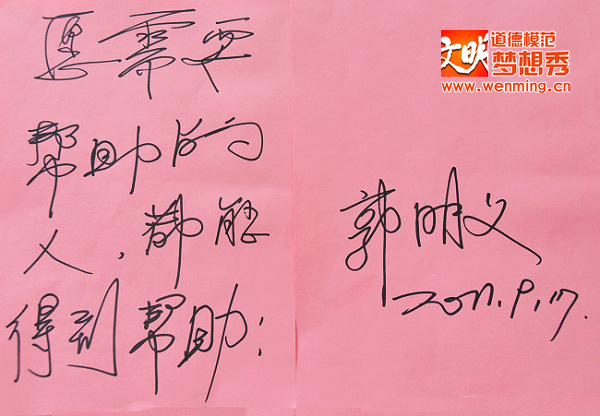 愿需要
帮助的
人，都能
得到帮助；
文明
道德模范
梦想秀
www.wenming.cn
郭明义
2011.9.17.